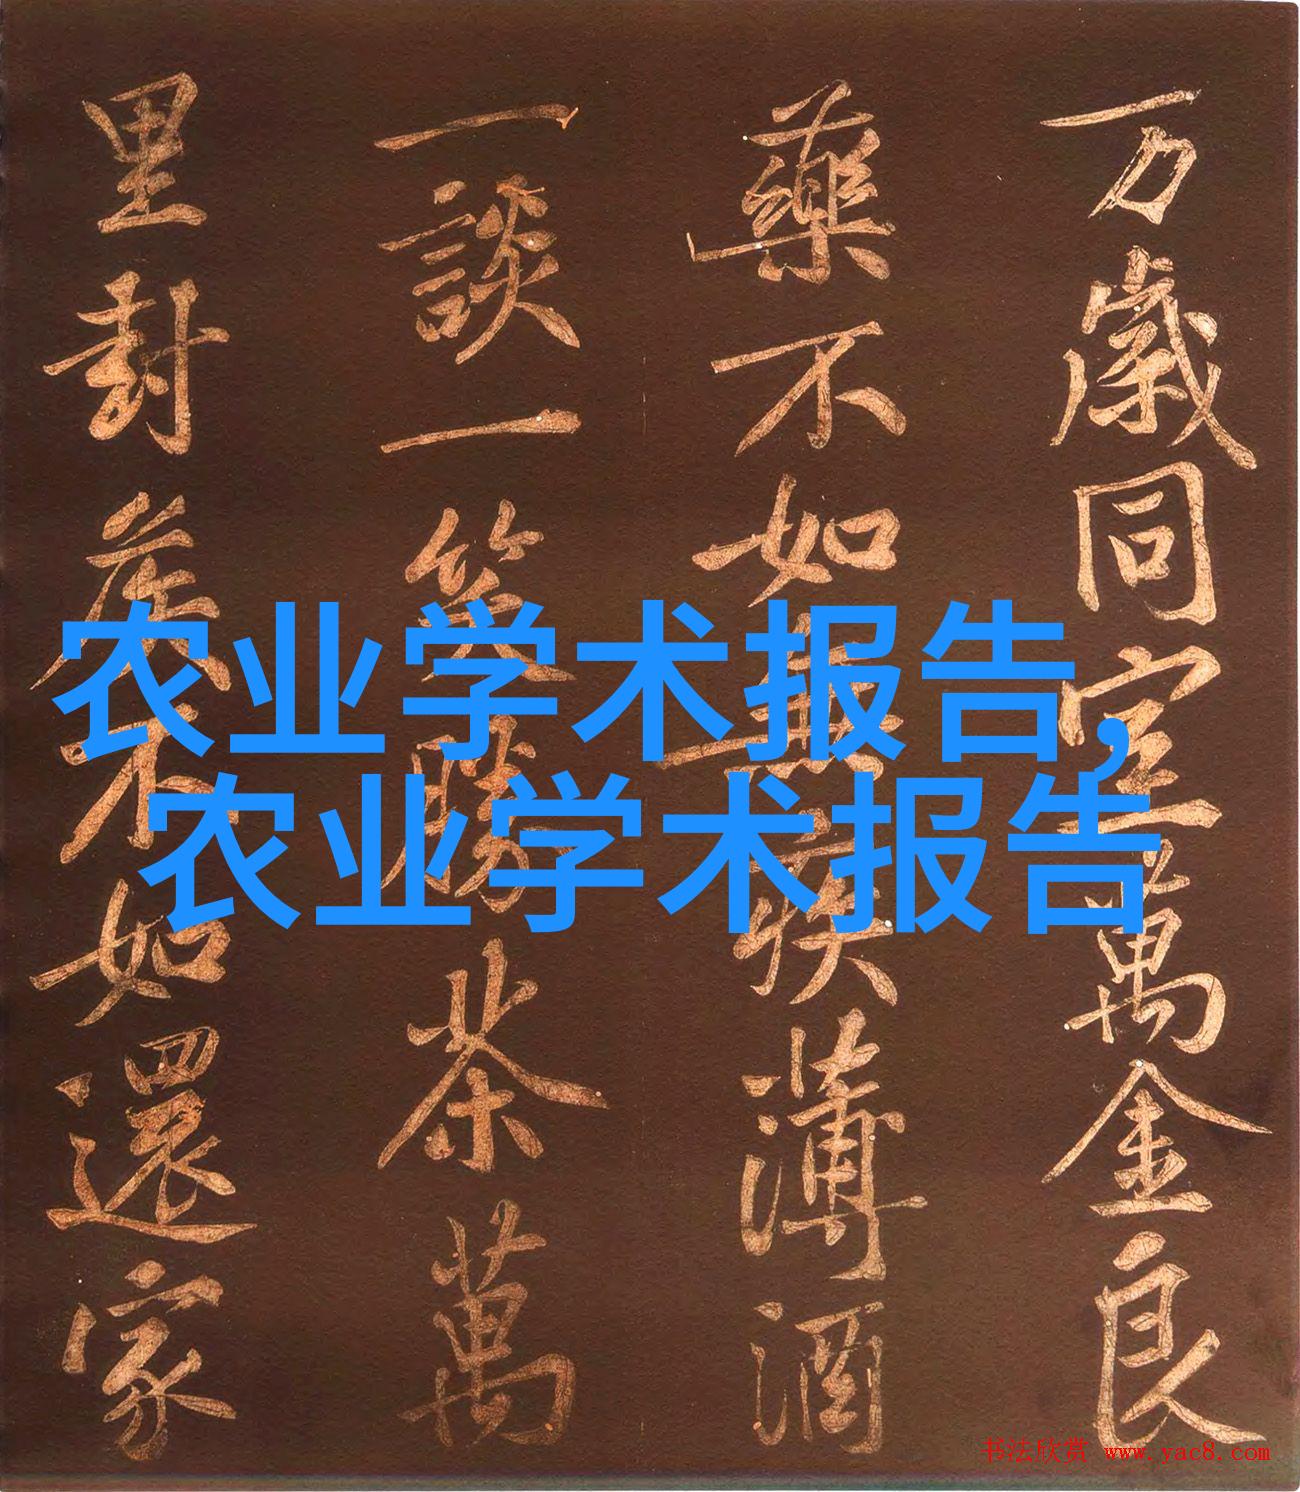 万歲同室萬金良
藥不如無疾薄酒
一談一笑勝茶萬
里封矦不如還家
农业学术报告,
农业学术报告
书法欣赏 www.yac8.com